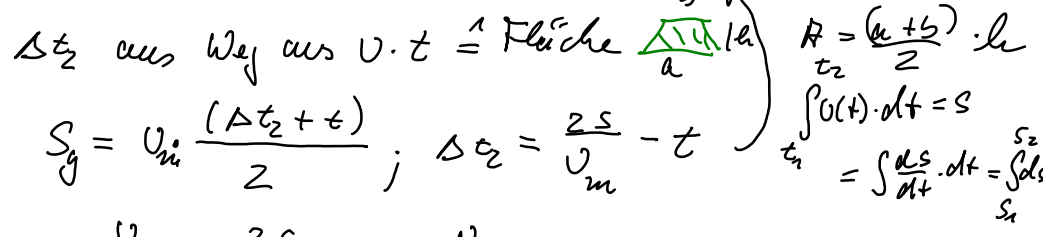 Δt₂ aus Weg aus υ · t ≙ Fläche a h
S_g = υ_m (Δt₂ + t) / 2 ; Δt₂ = 2s / υ_m - t
A = (a + b) / 2 · h
∫_{t₁}^{t₂} υ(t) · dt = s
= ∫ ds/dt · dt = ∫_{s₁}^{s₂} ds